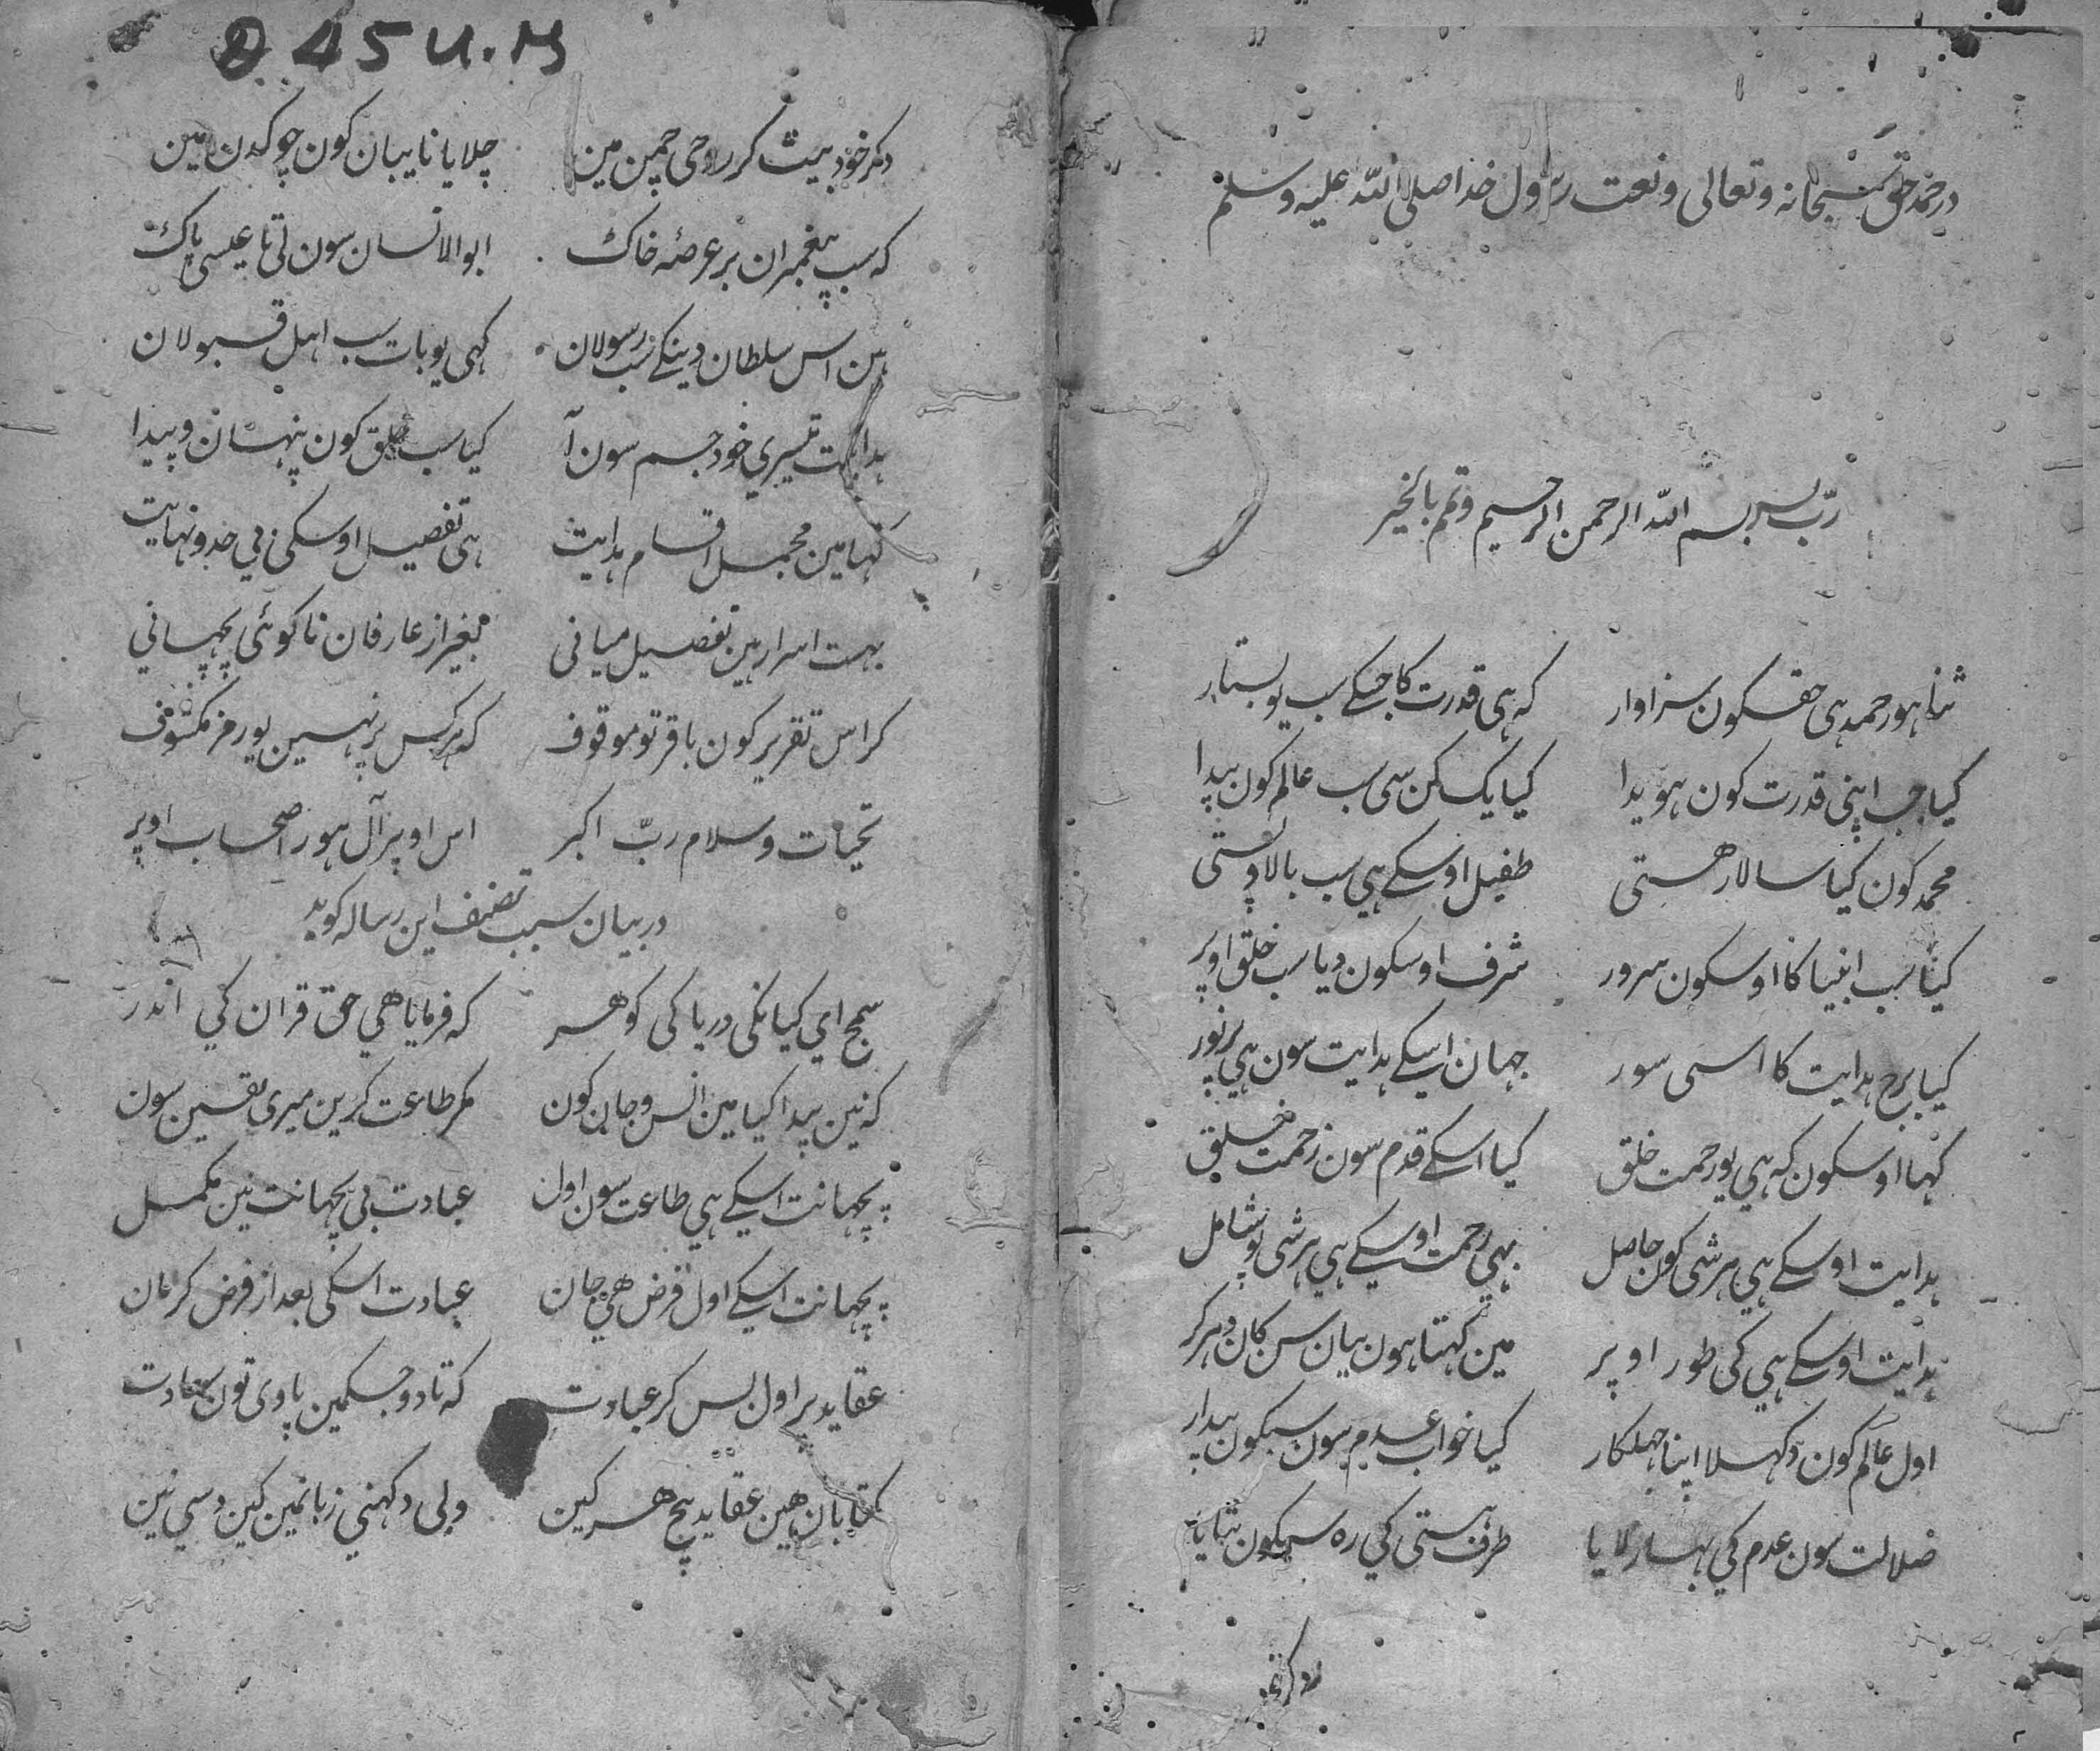 در حمد حق سبحانه وتعالی ونعت رسول خدا صلی الله علیه وسلم
ربّ یسر بسم الله الرحمن الرحیم وتمم بالخیر
ثنا ہور حمد ہی حقکون سزاوار کہ ہی قدرت کا جسکے سب یو بستار
کیا جب اپنی قدرت کون ہویدا کیا یک کن سی سب عالم کون پیدا
محمد کون کیا سالار هستی طفیل اوسکے ہی سب بالا وپستی
کیا سب انبیا کا اوسکون سرور شرف اوسکون دیا سب خلق اوپر
کیا برج ہدایت کا اسی سور جہان اسکے ہدایت سون ہی پرنور
کہا اوسکون کہ ہی یو رحمت خلق کیا اسکے قدم سون زحمت خلق
ہدایت اوسکے ہی ہر شی کون حاصل بہی رحمت اوسکے ہی ہر شی پو شامل
ہدایت اوسکے ہی کی طور اوپر مین کہتا ہون بیان سن کان دہر کر
اول عالم کون دکہلا اپنا جہلکار کیا خواب عدم سون سبکون بیدار
ضلالت سون عدم کی بہار لایا طرف ہستی کی رہ سبکون بتایا
دگر خود
دگر خود بیٹ کر روحی چمن مین چلایا نایبان کون چوکدن مین
کہ سب پیغمبران بر عرصۂ خاک ابو الانسان سون لی تا عیسی پاک
ہین اس سلطان دینکے سب رسولان کہی یو بات سب اہل قبولان
ہدایت تیسری خود جسم سون آ کیا سب خلق کون پنہان وپیدا
کہا مین مجمل اقسام ہدایت ہی تفصیل اوسکی بی حد ونہایت
بہت اسرار ہین تفصیل میانی بغیر از عارفان نا کوئی پچہانی
کر اس تقریر کون باقر تو موقوف کہ ہر کس پر نہین یو رمز مکشوف
تحیات وسلام ربّ اکبر اس اوپر آل ہور اصحاب اوپر
در بیان سبب تصنیف این رساله کوید
سمج ای کیانکی دریا کی کوهر کہ فرمایا هی حق قران کی اندر
کہ نین پیدا کیا مین انس وجان کون مگر طاعت کرین میری یقین سون
پچہانت اسکے ہی طاعت سون اول عبادت بی پچہانت نین مکمل
پچہانت اسکے اول فرض هی جان عبادت اسکی بعد از فرض کر مان
عقاید پر اول بس کر عبادت کہ تا دو جگمین پاوی تون سعادت
کتابان هین عقاید بیچ هر کین ولی دکہنی زبانمین کین دسی نین